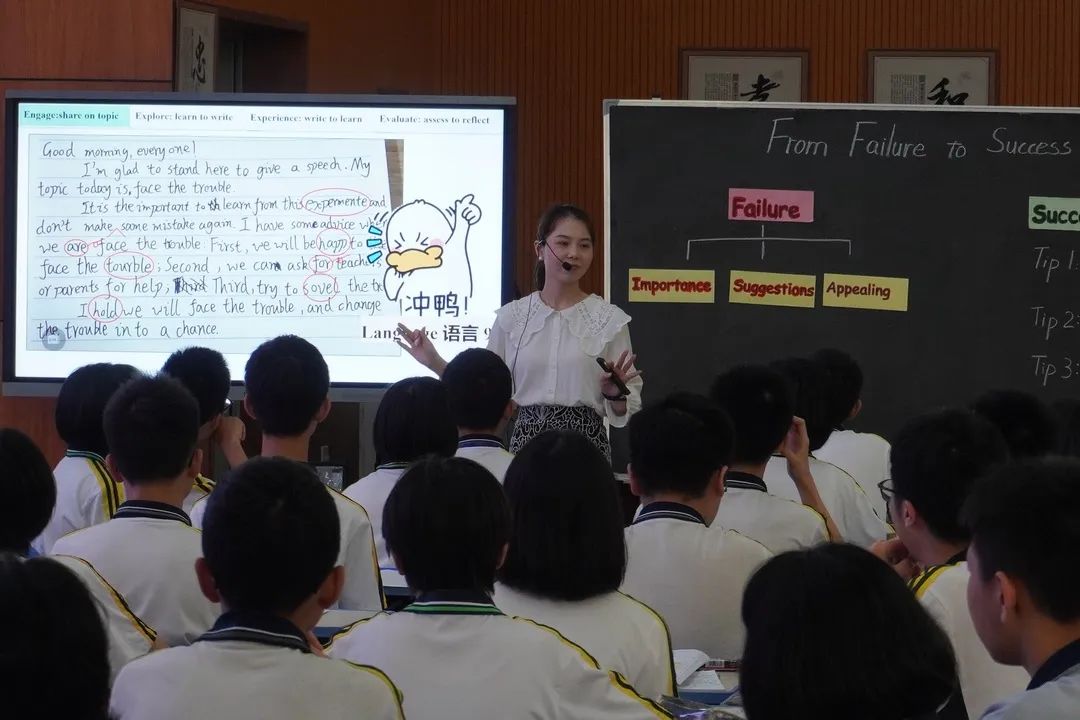 忠
孝
和
Engage:share on topic Explore: learn to write Experience: write to learn Evaluate: assess to reflect
Good morning, everyone!
I'm glad to stand here to give a speech. My
topic today is, face the trouble.
It is the important to learn from this expermente and
don't make same mistake again. I have some advice
we are face the trouble: First, we will be happ to
face the tourble; Second, we can ask for teachers
or parents for help, Third, try to sovel the
I hold we will face the trouble, and change
the trouble in to a chance.
冲鸭!
语言
From Failure to Success
Failure
Importance
Suggestions
Appealing
Tip 1:
Tip 2:
Tip 3: